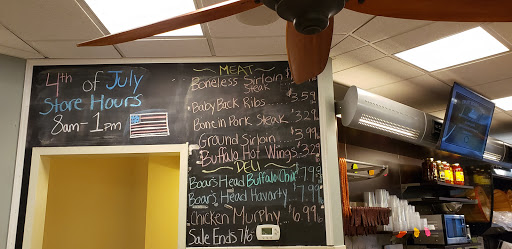 4th of July
Store Hours
8am-1pm
MEAT
Boneless Sirloin
Steak
Baby Back Ribs 3.59
Bone in Pork Steak 3.29
Ground Sirloin 3.99
Buffalo Hot Wings 3.29
DELI
Boar's Head Buffalo Chix 7.99
Boar's Head Havarty 7.99
Chicken Murphy $6.99
Sale Ends 7/6